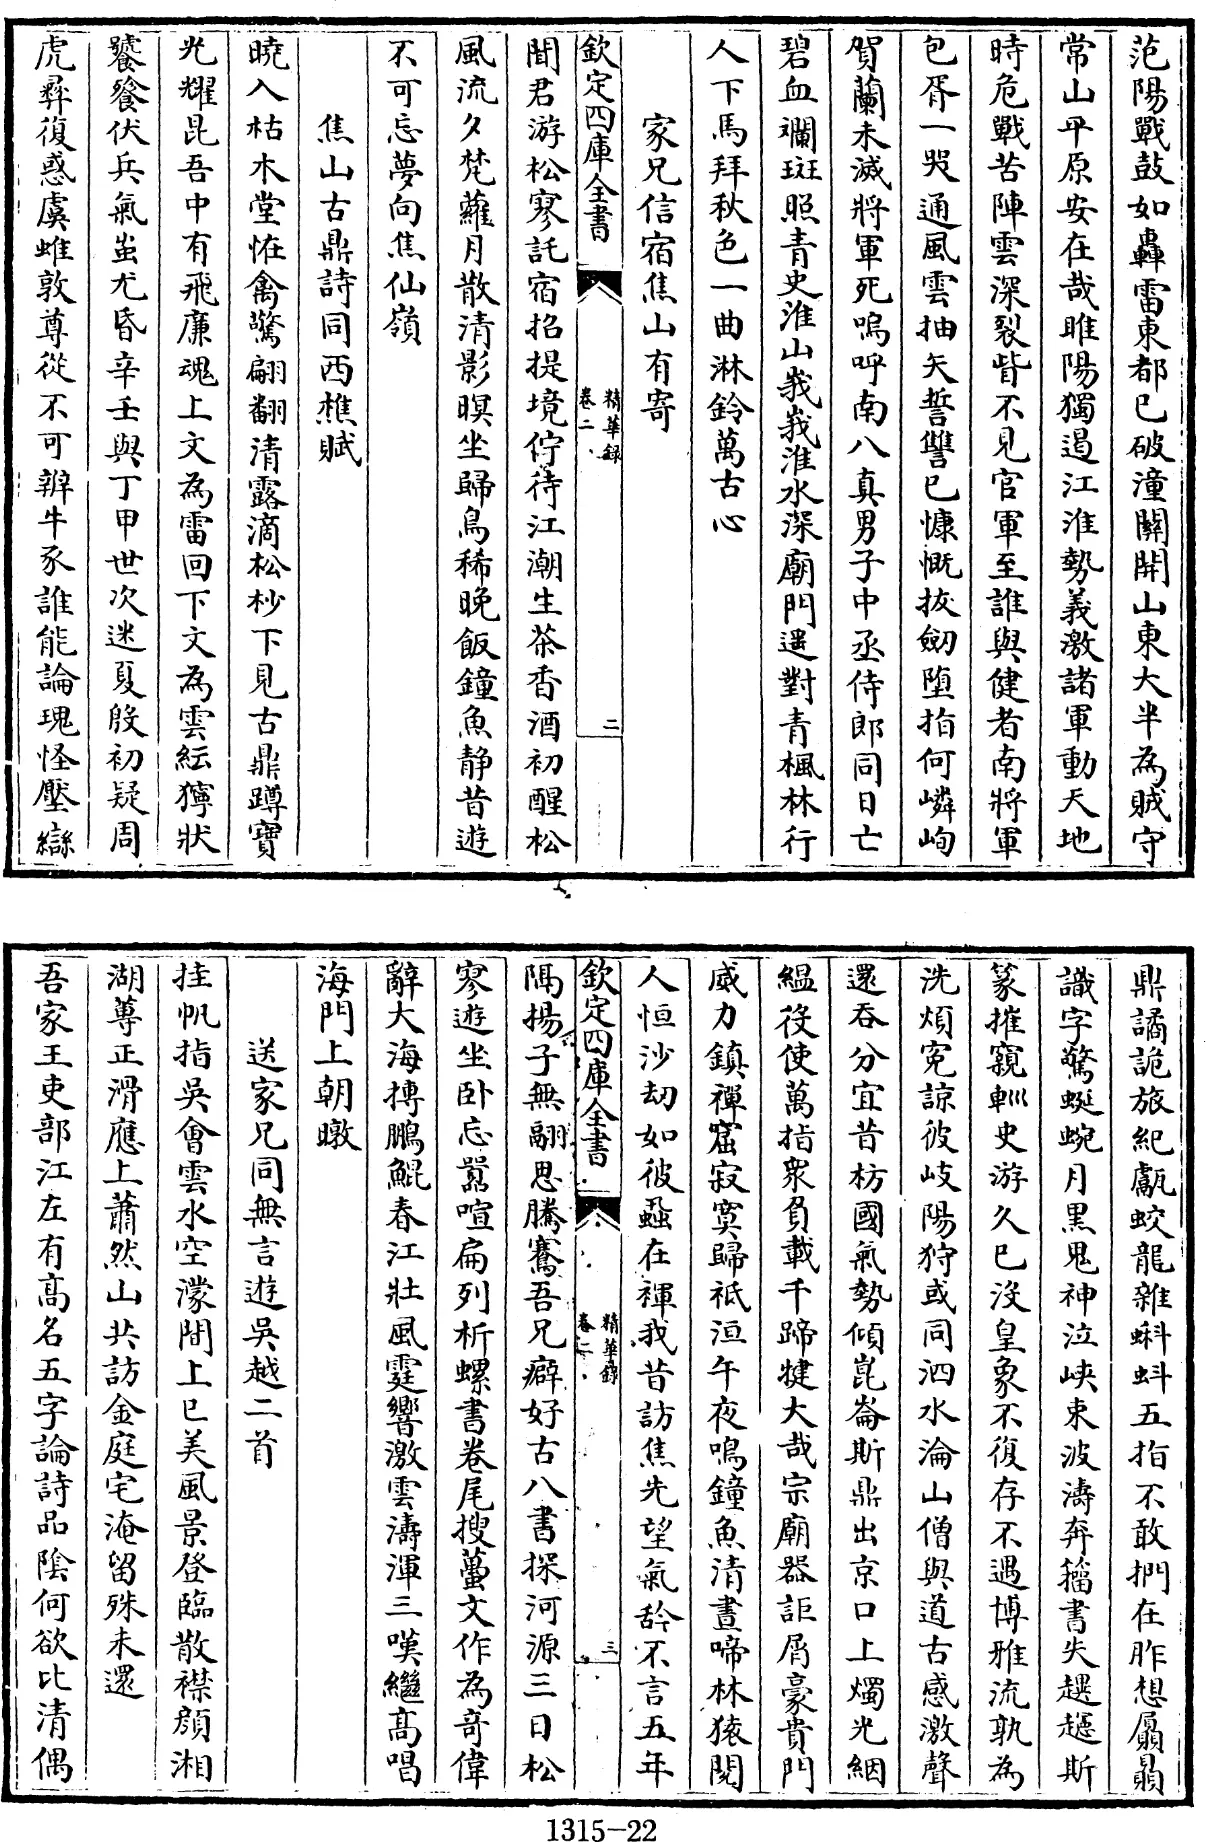 范陽戰鼓如轟雷東都已破潼關開山東大半為賊守
常山平原安在哉睢陽獨遏江淮勢義激諸軍動天地
時危戰苦陣雲深裂眥不見官軍至誰與健者南將軍
包胥一哭通風雲抽矢誓讐已慷慨拔劒堕指何嶙峋
賀蘭未滅將軍死嗚呼南八真男子中丞侍郎同日亡
碧血斕斑照青史淮山峩峩淮水深廟門遥對青楓林行
人下馬拜秋色一曲淋鈴萬古心
家兄信宿焦山有寄
欽定四庫全書
精華録
卷二
二
聞君游松寥託宿招提境佇待江潮生茶香酒初醒松
風流夕梵蘿月散清影暝坐歸鳥稀晚飯鐘魚静昔遊
不可忘夢向焦仙嶺
焦山古鼎詩同西樵賦
曉入枯木堂怪禽驚翩翻清露滴松杪下見古鼎蹲寶
光耀昆吾中有飛廉魂上文為雷回下文為雲紜獰狀
饕餮伏兵氣蚩尤昏辛壬與丁甲世次迷夏殷初疑周
虎彛復惑虞蜼敦尊從不可辨牛豕誰能論瑰怪壓䜌
鼎譎詭旅紀甗蛟龍雜蝌蚪五指不敢捫在昨想屭贔
識字驚蜒蜿月黒鬼神泣峽東波濤奔籀書失趩趯斯
篆摧窺軐史游久已沒皇象不復存不遇博雅流孰為
洗煩寃諒彼岐陽狩或同泗水淪山僧與道古感激聲
還吞分宜昔枋國氣勢傾崑崙斯鼎出京口上燭光絪
緼役使萬指衆負載千蹄犍大哉宗廟器詎屑豪貴門
威力鎮禪窟寂寞歸祇洹午夜鳴鐘魚清晝啼林猿閱
人恒沙刼如彼蝨在褌我昔訪焦先望氣舲不言五年
欽定四庫全書
精華録
卷二
三
隅揚子無翮思騰騫吾兄癖好古八書探河源三日松
寥遊坐卧忘囂喧扁列析螺書卷尾搜蠆文作為奇偉
辭大海摶鵬鯤春江壯風霆響激雲濤渾三嘆繼髙唱
海門上朝暾
送家兄同無言遊吳越二首
挂帆指吳會雲水空濛間上巳美風景登臨散襟顔湘
湖蓴正滑應上蕭然山共訪金庭宅淹留殊未還
吾家王吏部江左有髙名五字論詩品陰何欲比清偶
1315-22